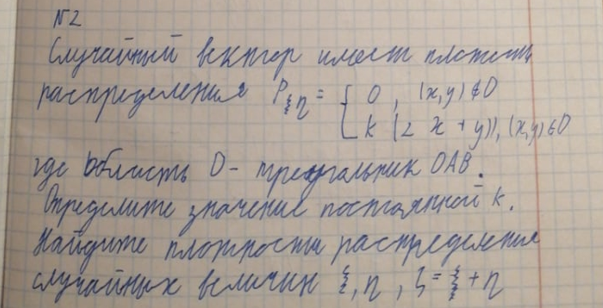 №2
Случайный вектор имеет плотность
распределения P_{ξη} = { 0, (x,y) ∉ D
k (2x + y), (x,y) ∈ D
где область D - треугольник OAB.
Определите значение постоянной k.
Найдите плотности распределения
случайных величин ξ, η, ζ = ξ + η